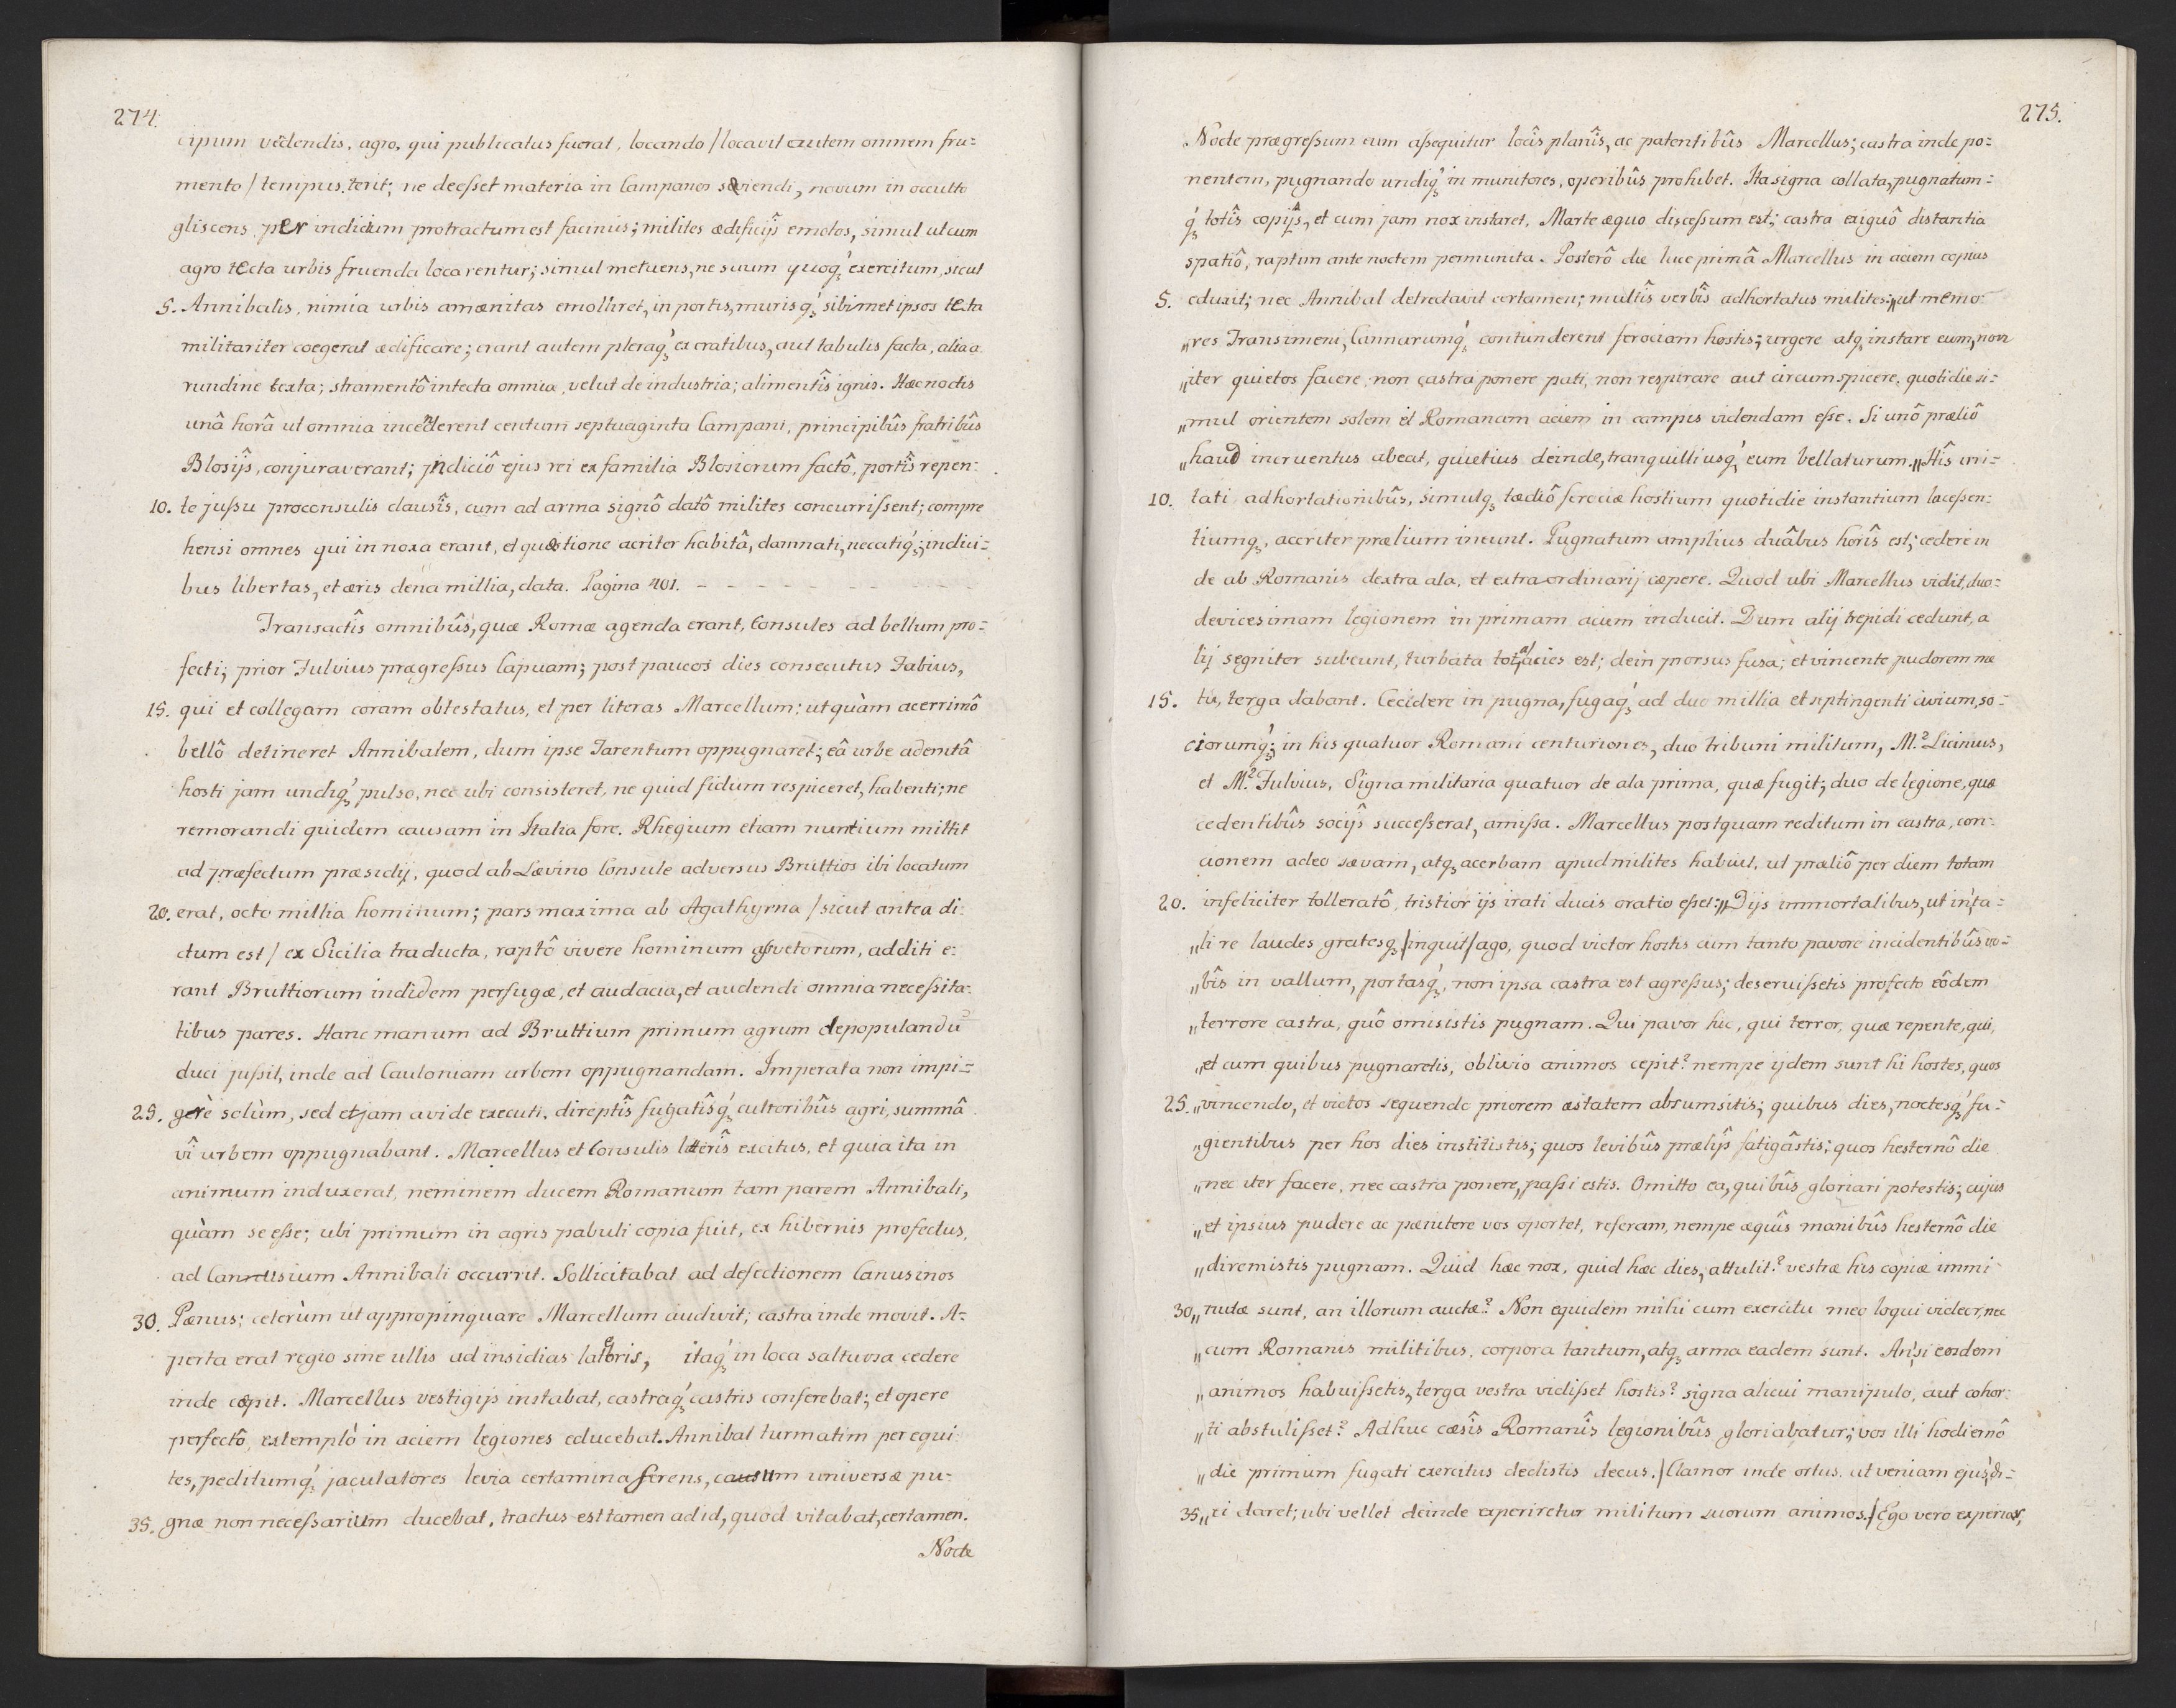 274.
cipum vedendis, agro, qui publicatus fuerat, locando / locavit autem omnem fru=
mento / tempus terit; ne deesset materia in Campanos sæviendi, novum in occulto
gliscens per indicium protractum est facinus; milites ædificijs emotos, simul ut cum
agro tecta urbis fruenda locarentur; simul metuens, ne suum quoq́; exercitum, sicut
5. Annibalis, nimia urbis amœnitas emolliret, in portis, murisq́; sibimet ipsos tecta
militariter coegerat ædificare; erant autem pleraq́; ex cratibus, aut tabulis facta, alia a
rundine texta; stramentô intecta omnia, velut de industria; alimentîs ignis. Hæc noctis
unâ horâ ut omnia incenderent centum septuaginta Campani, principibûs fratribûs
Blosijs, conjuraverant; indiciô ejus rei ex familia Blosiorum factô, portîs repen=
10. te jussu proconsulis clausîs, cum ad arma signô datô milites concurrissent; compre
hensi omnes qui in noxa erant, et quæstione acriter habitâ, damnati, necatiq́; indici=
bus libertas, et æris dena millia, data. Pagina 401. - - - - - - -
Transactîs omnibûs, quæ Romæ agenda erant, Consules ad bellum pro=
fecti; prior Fulvius prægressus Capuam; post paucos dies consecutus Fabius,
15. qui et collegam coram obtestatus, et per literas Marcellum: ut quàm acerrimô
bellô detineret Annibalem, dum ipse Tarentum oppugnaret; eâ urbe ademtâ
hosti jam undiq́; pulso, nec ubi consisteret, ne quid fidum respiceret, habenti; ne
remorandi quidem causam in Italia fore. Rhegium etiam nuntium mittit
ad præfectum præsidij, quod ab Lævino Consule adversus Bruttios ibi locatum
20. erat, octo millia hominum; pars maxima ab Agathyrna / sicut antea di=
ctum est / ex Sicilia traducta, raptô vivere hominum assvetorum, additi e=
rant Bruttiorum indidem perfugæ, et audacia, et audendi omnia necessita=
tibus pares. Hanc manum ad Bruttium primum agrum depopulandu
duci jussit, inde ad Cauloniam urbem oppugnandam. Imperata non impi=
25. gerè solùm, sed etjam avide executi, direptîs fugatîsq́; cultoribûs agri, summâ
vî urbem oppugnabant. Marcellus et Consulis litterîs excitus, et quia ita in
animum induxerat, neminem ducem Romanum tam parem Annibali,
quàm se esse; ubi primum in agris pabuli copia fuit, ex hibernis profectus,
ad Canusium Annibali occurrit. Sollicitabat ad defectionem Canusinos
30. Pœnus; ceterùm ut appropinquare Marcellum audivit; castra inde movit. A=
perta erat regio sine ullis ad insidias latebris, itaq́; in loca saltuosa cedere
inde cœpit. Marcellus vestigijs instabat, castraq́; castris conferebat; et opere
perfectô, extemplò in aciem legiones educebat. Annibal turmatim per equi
tes, peditumq́; jaculatores levia certamina serens, casum universæ pu=
35. gnæ non necessarium ducebat, tractus est tamen ad id, quod vitabat, certamen.
Nocte
275.
Nocte prægressum eum assequitur locîs planîs, ac patentibûs Marcellus; castra inde po=
nentem, pugnando undiq́; in munitores, operibûs prohibet. Ita signa collata, pugnatum=
q́; totîs copijs, et cum jam nox instaret, Marte æquo discessum est; castra exiguô distantia
spatiô, raptim ante noctem permunita. Posterô die luce primâ Marcellus in aciem copias
5. eduxit; nec Annibal detrectavit certamen; multîs verbîs adhortatus milites: „ut memo=
„res Transimeni, Cannarumq́; contunderent ferociam hostis; urgere atq; instare eum, non
„iter quietos facere, non castra ponere pati, non respirare aut circumspicere, quotidie si=
„mul orientem solem et Romanam aciem in campis videndam esse. Si unô præliô
„haud incruentus abeat, quietius deinde, tranquilliusq́; eum bellaturum.„ Hîs irri=
10. tati adhortationibûs, simulq; tædiô ferociæ hostium quotidie instantium lacessen=
tiumq;, acriter prælium ineunt. Pugnatum amplius duâbus horîs est; cedere in
de ab Romanis dextra ala, et extraordinarij cœpere. Quod ubi Marcellus vidit, duo=
devicesimam legionem in primam aciem inducit. Dum alij trepidi cedunt, a
lij segniter subeunt, turbata tota acies est; dein prorsus fusa; et vincente pudorem me
15. tu, terga dabant. Cecidere in pugna, fugaq́; ad duo millia et septingenti civium, so=
ciorumq́; in his quatuor Romani centuriones, duo tribuni militum, M.? Licinius,
et M.? Fulvius, Signa militaria quatuor de ala prima, quæ fugit; duo de legione, quæ
cedentibûs socijs successerat, amissa. Marcellus postquam reditum in castra, con=
cionem adeo sævam, atq; acerbam apud milites habuit, ut præliô per diem totam
20. infeliciter tolleratô, tristior ijs irati ducis oratio esset: „Dijs immortalibus, ut in ta=
„li re laudes gratesq; /inquit/ ago, quod victor hostis cum tanto pavore incidentibûs vo=
„bîs in vallum, portasq́;, non ipsa castra est agressus; deseruissetis profecto eôdem
„terrore castra, quô omisistis pugnam. Qui pavor hic, qui terror, quæ repente, qui,
„et cum quibus pugnaretis, oblivio animos cepit? nempe ijdem sunt hi hostes, quos
25. „vincendo, et victos sequendo priorem æstatem absumsitis; quibus dies, noctesq́; fu=
„gientibus per hos dies institistis; quos levibûs prælijs fatigâstis; quos hesternô die
„nec iter facere, nec castra ponere, passi estis. Omitto ea, quibûs gloriari potestis; cujus
„et ipsius pudere ac pænitere vos oportet, referam, nempe æquîs manibûs hesternô die
„diremistis pugnam. Quid hæc nox, quid hæc dies, attulit? vestræ his copiæ immi
30. „nutæ sunt, an illorum auctæ? Non equidem mihi cum exercitu meo loqui videor, nec
„cum Romanis militibus, corpora tantum, atq; arma eadem sunt. An, si eosdem
„animos habuissetis, terga vestra vidisset hostis? signa alicui manipulo, aut cohor=
„ti abstulisset? Adhuc cæsîs Romanîs legionibûs gloriabatur; vos illi hodiernô
„die primum fugati exercitus dedistis decus. / Clamor inde ortus, ut veniam ejus di=
35. „ei daret; ubi vellet deinde experiretur militum suorum animos. / Ego vero experior,